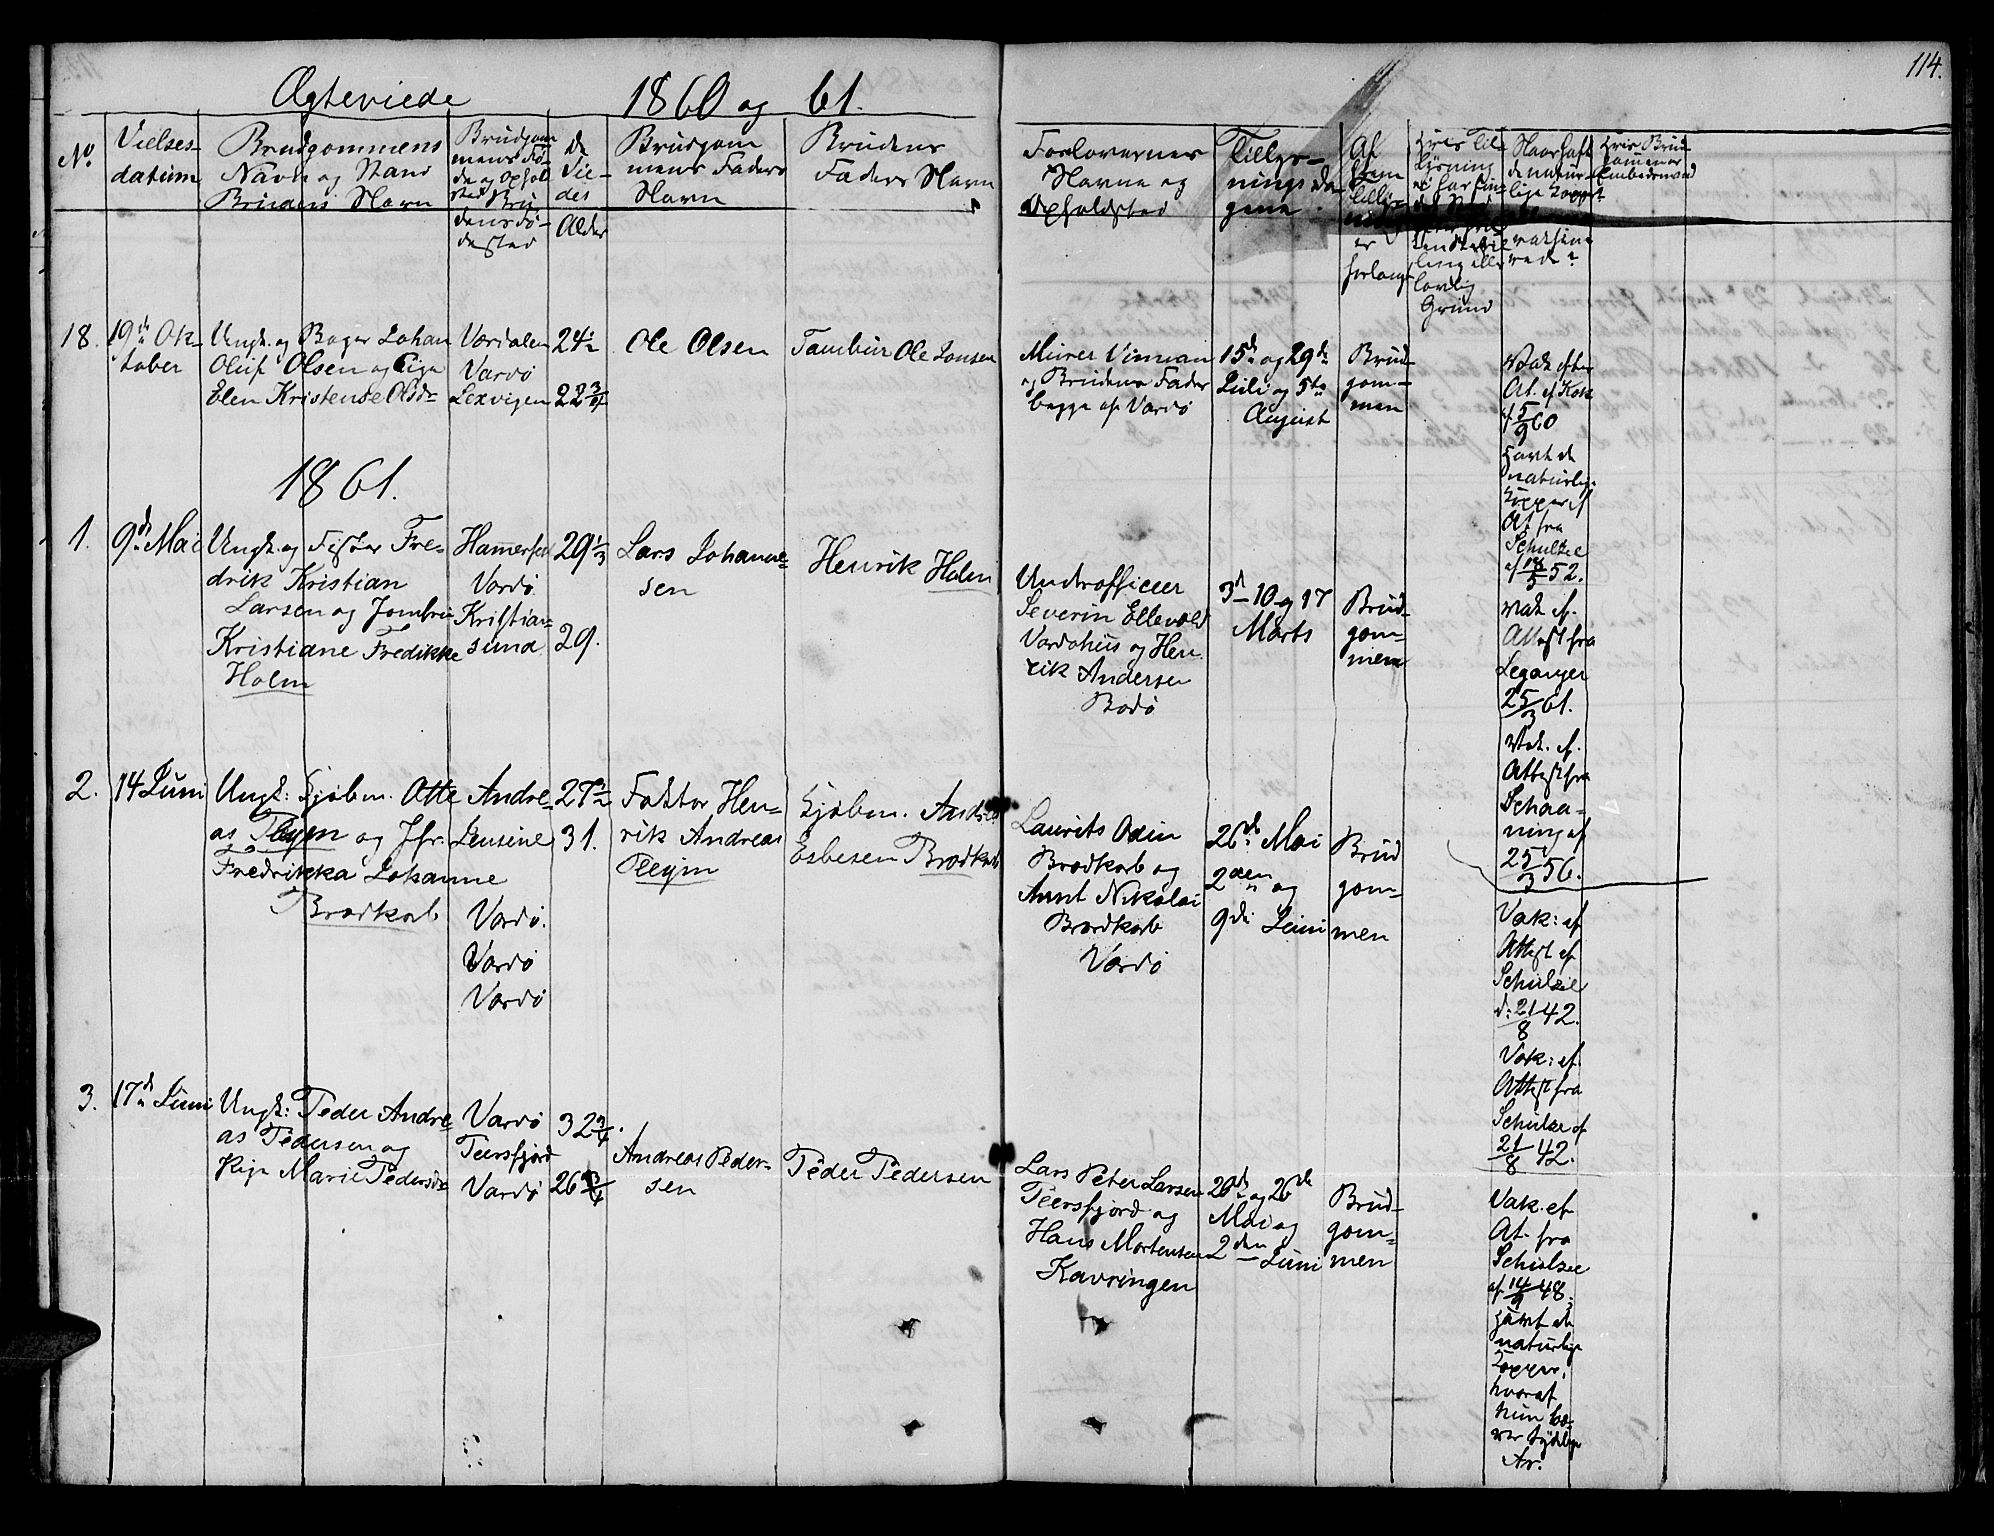 Ægteviede 1860 og 61.
114.
No.
Vielses-
datum
Brudgommens
Navn og Stand
Brudens Navn
Brudgom
mens Fø-
de og Ophold
sted Bru
dens Fø-
dested
de
Vie-
des
Alder
Brudgom
mens Faders
Navn
Brudens
Faders Navn
Forlovernes
Navne og
Opholdsted
Tillys-
nings Da
gene.
Af
hvem
er
forlangt
lovlig
Grund
18.
19de Ok-
tober
Ungk. og Bager Johan
Oluf Olsen og Pige
Elen Kristense Olsdr
Værdalen
Vardø
Lexvigen
24½
22¾
Ole Olsen
Tambur Ole Jonsen
Murer
og Brudens Fader
begge af Vardø
15de og 29de
Juli og 5te
August
Brud-
gom-
men
Vak efter
At. af Kok
af 5/9 60
havt de
naturlige
Kopper ef
At fra
Schultze
af 18/5 52.
1861.
1.
9de Mai
Ungk. og Fisker Fre-
drik Kristian
Larsen og Jomfru
Kristiane Fredikke
Holm
Hammerfest
Vardø
Kristian-
sund
29⅓
29.
Lars Johanne-
sen
Henrik Holm
Underofficer
Severin Ellevold
Vardøhus og Hen
rik Andersen
Bodø
3d 10 og 17
Marts
Brud-
gom-
men
vak ef.
Attest fra
Leganger
25/3 61.
Vak. ef.
Attest fra
Schaa-
ning af
25/3 56.
2.
14 Juni
Ungk: Kjøbm. Otte Andre-
as Pleym og Jfr. Jensine
Fredrikka Johanne
Brodkorb
Vardø.
Vardø
Vardø
27½
31.
Faktor Hen-
rik Andreas
Pleym
Kjøbm. Andreas
Esbesen Brodkorb
Laurits Odin
Brodkorb og
Arnt Nikolai
Brodkorb
Vardø
26de Mai
2den og
9de Juni
Brud
gom-
men
Vak: ef
Attest af
Schulze
d: 21/8 42.
Vak: ef.
Attest fra
Schulze af
21/8 42.
3.
17de Juni
Ungk: Peder Andre-
as Pedersen og
Pige Marie Pedersdr
Vardø
Peersfjord
Vardø
32¾.
26¾
Andreas Peder-
sen
Peder Pedersen
Lars Peter Larsen
Peersfjord og
Hans Mortensen
Kavringen
20de og 26de
Mai og
2den Juni
Brud-
gom-
men
Vak. ef
At. fra
Schulze
af 14/9 48.
havt de
naturlige
Kopper,
hvoraf
hun bæ-
rer tydelige
Ar.